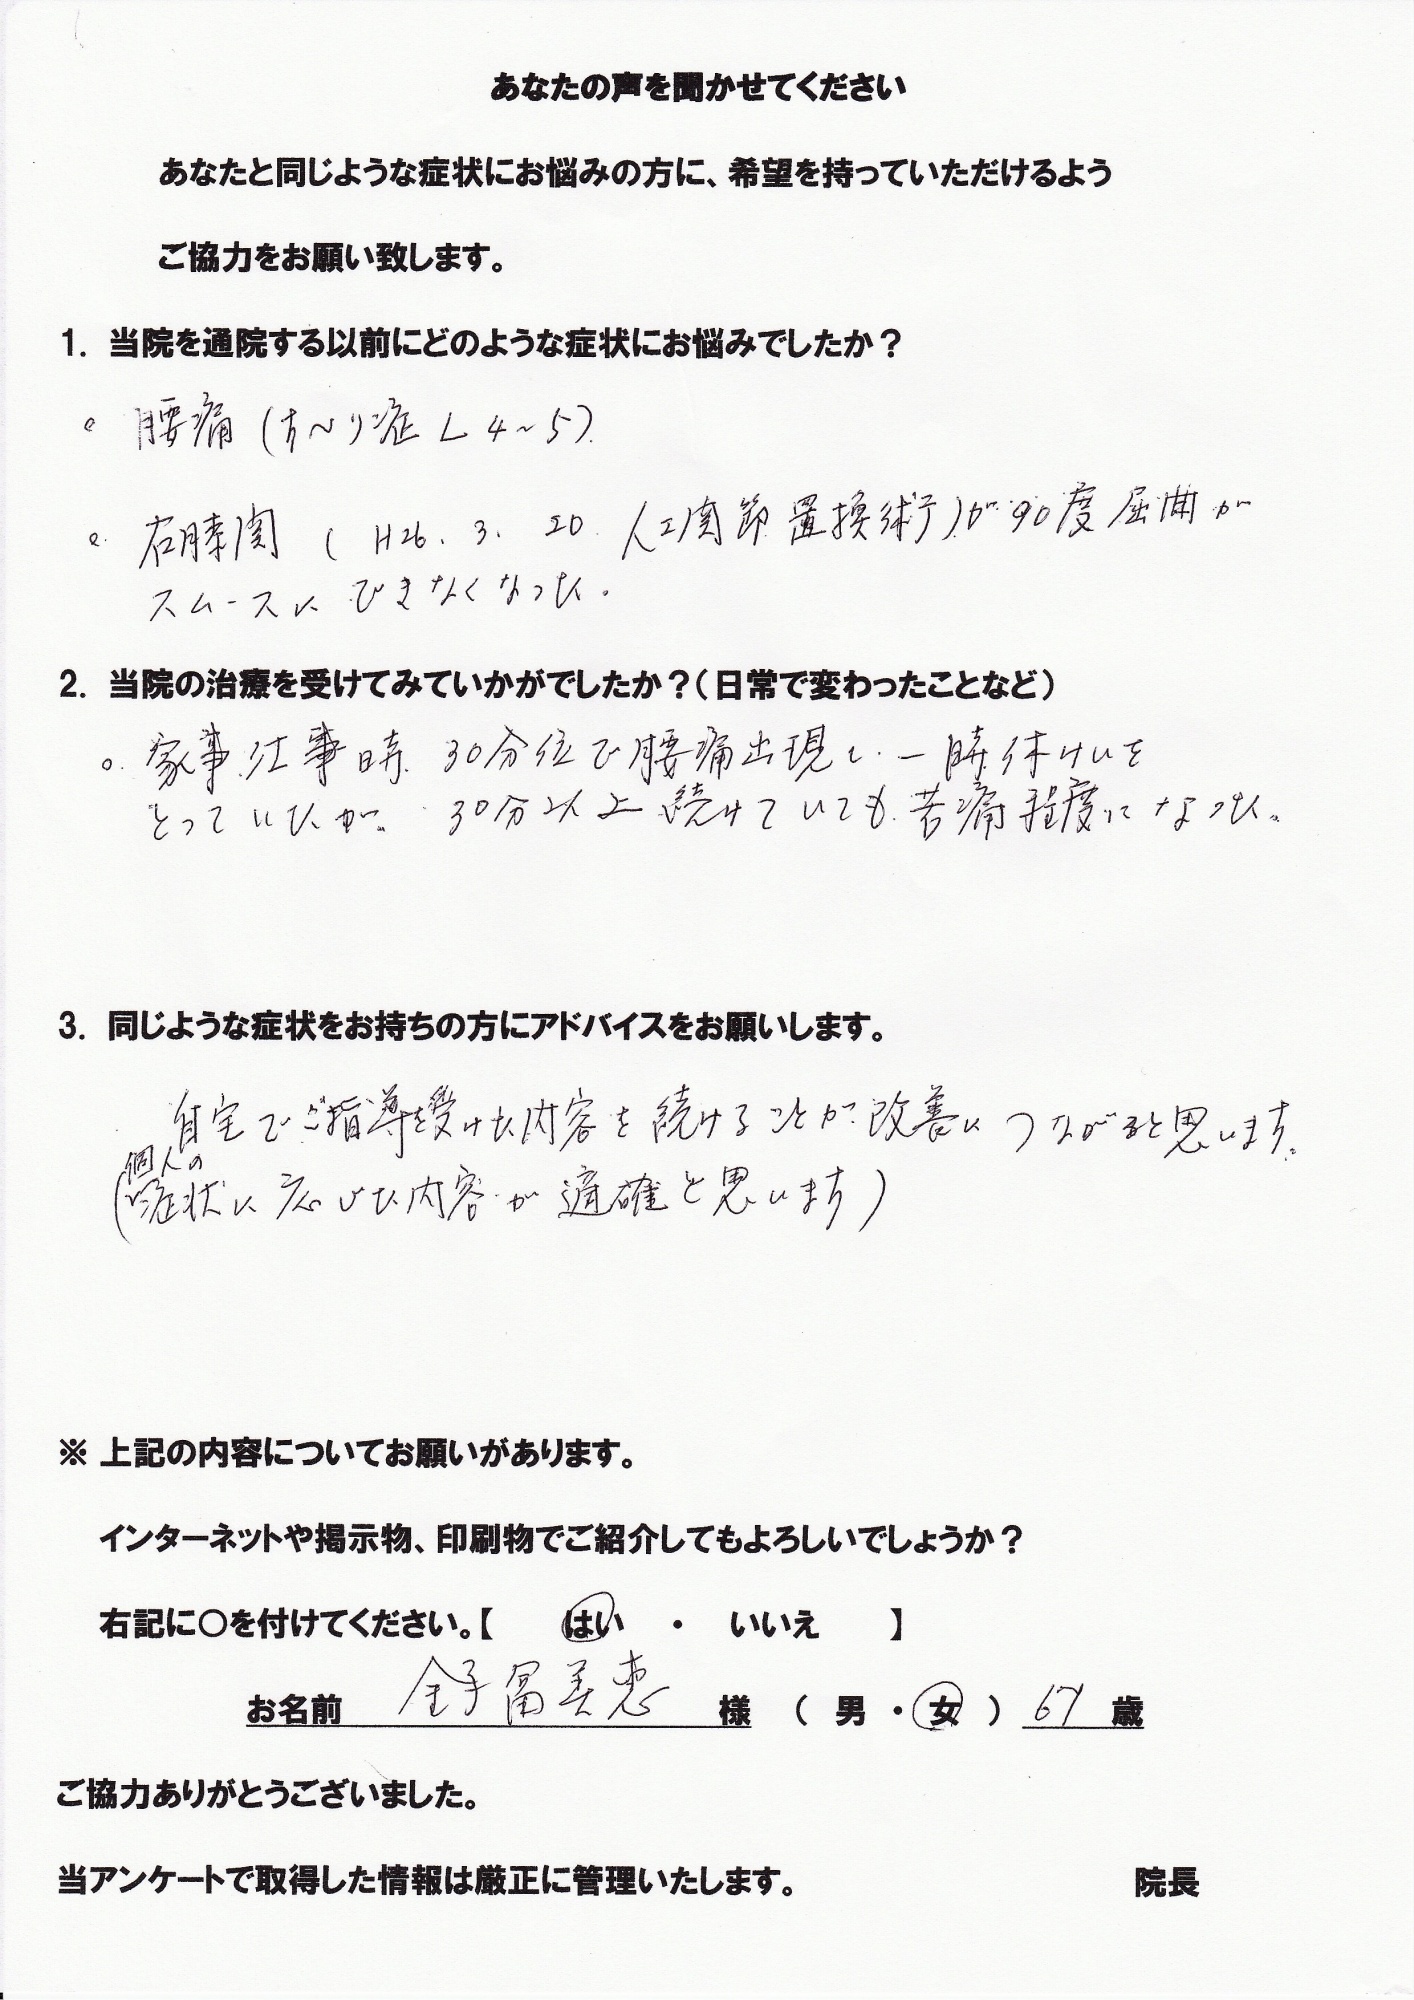 あなたの声を聞かせてください
あなたと同じような症状にお悩みの方に、希望を持っていただけるよう
ご協力をお願い致します。
1. 当院を通院する以前にどのような症状にお悩みでしたか？
。腰痛(すべり症L4～5)
。右膝関(H26.3.20.人工関節置換術)が90度屈曲が
スムースにできなくなった。
2. 当院の治療を受けてみていかがでしたか？（日常で変わったことなど）
。家事.仕事時.30分位で腰痛出現し.一時休けいを
とっていたが。30分以上続けていても.苦痛程度になった。
3. 同じような症状をお持ちの方にアドバイスをお願いします。
自宅でご指導を受けた内容を続けることが改善につながると思います。
個人の
(症状に応じた内容が適確と思います)
※ 上記の内容についてお願いがあります。
インターネットや掲示物、印刷物でご紹介してもよろしいでしょうか？
右記に○を付けてください。【 はい ・ いいえ 】
お名前 金子冨美恵 様 （ 男 ・ 女 ） 67 歳
ご協力ありがとうございました。
当アンケートで取得した情報は厳正に管理いたします。 院長